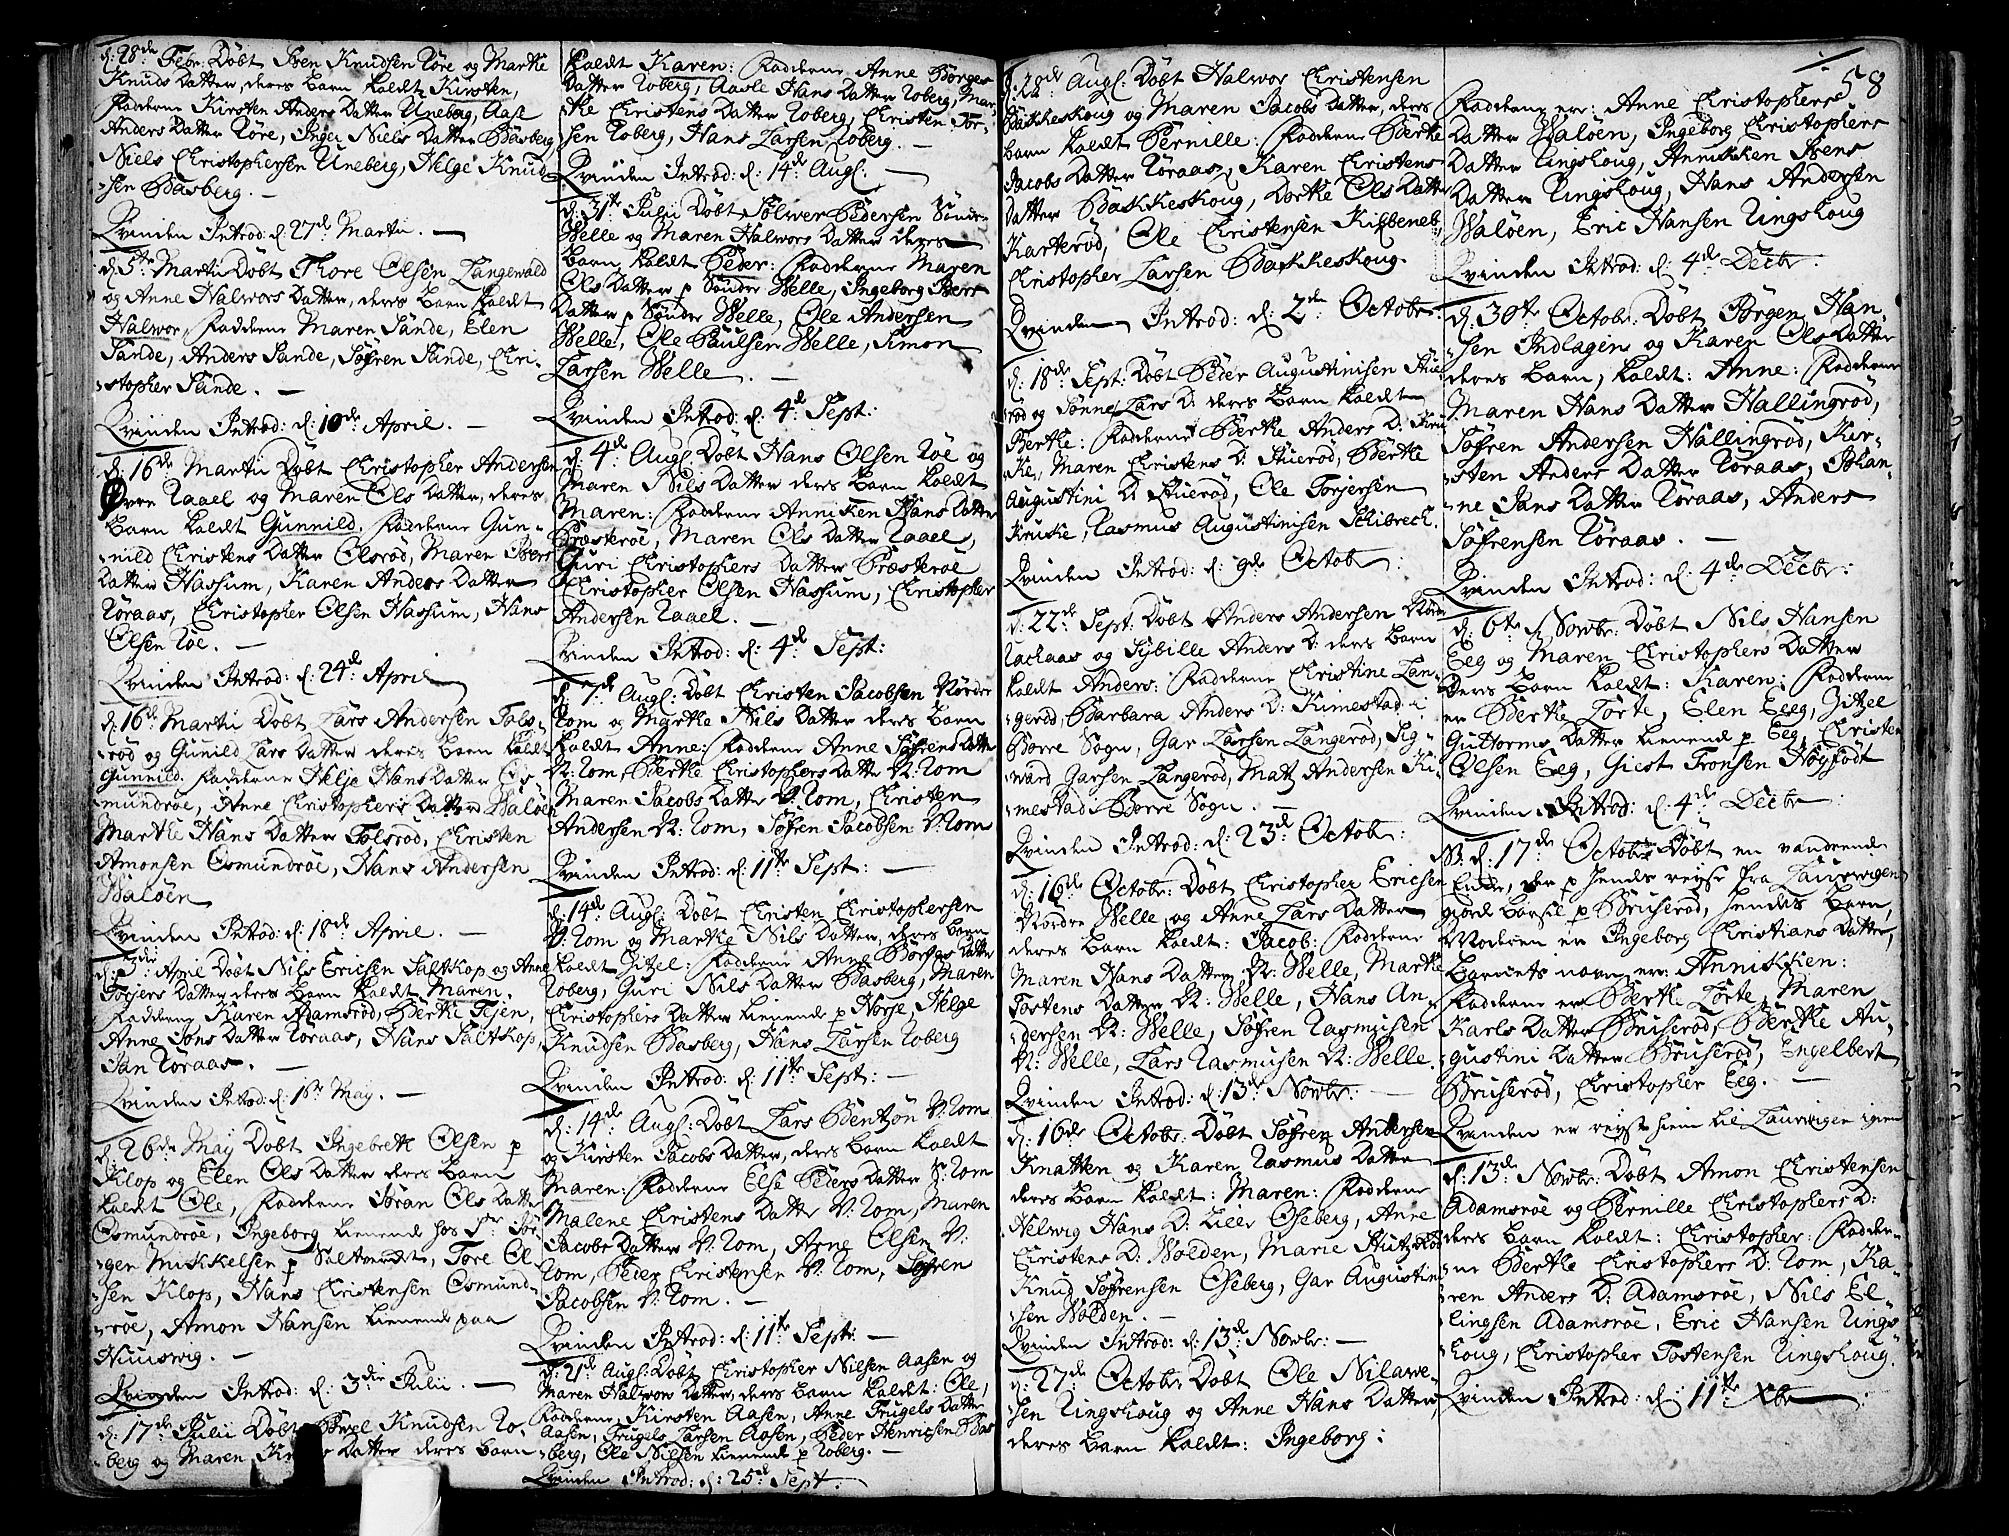 d: 28de Febr: Döbt Sven Knudsen Röre og Marthe
Knuds Datter, deres barn kaldt Kirsten,
Fadderne Kirsten Anders Datter Uneberg, Aase
Anders Datter Röre, Inger Niels Datter Basberg
Niels Christophersen Uneberg, Helge Knud-
-sen Basberg. —
Qvinden Introd: d: 27de Martii. —
d: 5te Martii Döbt Thore Olsen Langevald
og Anne Halwors Datter, deres barn kaldt
Halwor, Fadderne Maren Sande, Elen
Sande, Anders Sande, Söfren Sande, Chri-
-stopher Sande. —
Qvinden Introd: d: 10de April. —
d: 16de Martii Döbt Christopher Andersen
Raael og Maren Ols Datter, deres
barn kaldt Gunnild. Fadderne Gun-
-nild Christens Datter Olsröd, Maren Ivers
Datter Hassum, Karen Anders Datter
Röraas, Christopher Olsen Hassum, Hans
Olsen Röe. —
Qvinden Introd: d: 24de April
d: 16de Martii Döbt Lars Andersen Fols-
-röd og Gunild Lars Datter deres barn kaldt
Gunnild. Fadderne Helje Hans Datter Os-
mundröe, Anne Christophers Datter Walöen
Marthe Hans Datter Folsröd, Christen
Amonsen Osmundröe, Hans Andersen
Walöen
Qvinden Introd: d: 18de April. —
d: 3die April Döbt Nils Ericsen Saltkop og Anne
Torjers Datter deres barn kaldt Maren.
Fadderne Karen Adamsröd, Berthe Tejen,
Anne Jons Datter Röraas, Hans Saltkop,
Jan Röraas. —
Qvinden Introd: d: 1ste May. —
d: 26de May Döbt Ingebreth Olsen p
Klop og Elen Ols Datter deres barn
kaldt Ole, Fadderne Jöran Ols Datter
Osmundröe, Ingeborg tienende hos Sr Jör-
-gen Mikkelsen p Saltmundt, Tore Ol-
-sen Klop, Hans Christensen Osmund-
-röe, Amon Hansen tienende paa
Huuswig. —
Qvinden Introd: d: 3die Julii. —
d: 17de Julii Döbt Knudsen Ro-
-berg og Maren Datter deres barn
kaldt Karen: Fadderne Anne Börges
Datter Roberg, Aasle Hans Datter Roberg, Mar-
the Christens Datter Roberg, Christen Tor-
sen Roberg, Hans Larsen Roberg. —
Qvinden Introd: d: 14de Aug. —
d: 31te Julii Döbt Sölwer Pedersen Söndre
Welle og Maren Halwors Datter deres
barn kaldt Peder: Fadderne Maren
Ols Datter p Sönder Welle, Ingeborg Ivers
Datter p Sönder Welle, Ole Andersen
Welle, Ole Paulsen Welle, Simon
Larsen Welle. —
Qvinden Introd: d: 4de Sept:
d: 4de Aug Döbt Hans Olsen Röe og
Maren Nils Datter deres barn kaldt
Maren: Fadderne Anniken Hans Datter
Præsteröe, Maren Ols Datter Raael,
Guri Christophers Datter Præsteröe
Christopher Olsen Hassum, Christopher
Andersen Raael. —
Qvinden Introd: d: 4de Sept:
d: 7de Aug: Döbt Christen Jacobsen Nordre
Rom og Marthe Nils Datter deres barn
kaldt Anne: Fadderne Anne Söfrens Datter
N: Rom, Berthe Christophers Datter N: Rom
Maren Jacobs Datter N: Rom, Christen
Andersen N: Rom, Söfren Jacobsen N: Rom
Qvinden Introd: d: 11te Sept: —
d: 14de Aug: Döbt Christen Christophersen
N: Rom og Marthe Nils Datter, deres barn
kaldt Zitzel: Fadderne Anne Börges Datter
Roberg, Guri Nils Datter Basberg, Maren
Christophers Datter tienende p Horse, Helge
Knudsen Basberg, Hans Larsen Roberg
Qvinden Introd: d: 11te Sept: —
d: 14de Aug: Döbt Lars Bentzön N: Rom
og Kirsten Jacobs Datter, deres barn kaldt
Maren: Fadderne Else Peders Datter S: Rom
Malene Christens Datter N: Rom, Maren
Jacobs Datter N: Rom, Arne Olsen N:
Rom, Peder Christensen N: Rom, Söfren
Jacobsen N: Rom. —
Qvinden Introd: d: 11te Sept: —
d: 21de Aug: Döbt Christopher Nilsen Aasen og
Maren Halwors Datter, deres barn kaldt: Ole,
Fadderne, Kirsten Aasen, Anne Trugels Datter
Aasen, Trugels Larsen Aasen, Peder Henricsen Bas
berg, Ole Nilsen tienende p Roberg. —
Qvinden Introd: d: 25de Sept:
d: 28de Aug: Döbt Halwor Christensen
Bakkeskoug og Maren Jacobs Datter, deres
barn kaldt Pernille: Fadderne Berthe
Jacobs Datter Röraas, Karen Christens
Datter Bakkeskoug, Dorthe Ols Datter
Karteröd, Ole Christensen
Christopher Larsen Bakkeskoug.
Qvinden Introd: d: 2den Octobr:
d: 18de Sept: Döbt Peder Augustinisen Stue-
röd og Sönne Lars D: deres barn kaldt
Berthe: Fadderne Berthe Anders D: Kru-
ke, Maren Christens D: Stueröd, Berthe
Augustini D: Stueröd, Ole Torjersen
Kruke, Rasmus Augustinisen Schibrech.
Qvinden Introd: d: 9de Octobr:
d: 22de Sept: Döbt Anders Andersen Nördre
Rachaas og Sybille Anders D: deres barn
kaldt Anders: Fadderne Christine Lan-
-geröd, Barbara Anders D: Kimestad i
Borre Sogn, Gar Larsen Langeröd, Sig-
ward Garsen Langeröd, Matz Andersen Ki-
mestad i Borre Sogn. —
Qvinden Introd: d: 23de Octobr:
d: 16de Octobr: Döbt Christopher Ericsen
Nordre Welle og Anne Lars Datter
deres barn kaldt: Jacob: Fadderne
Maren Hans Datter N: Welle, Marthe
Tostens Datter N: Welle, Hans An-
-dersen N: Welle, Söfren Rasmusen
N: Welle, Lars Rasmusen N: Welle.
Qvinden Introd: d: 13de Nowbr: —
d: 16de Octobr: Döbt Söfren Andersen
Knatten og Karen Rasmus Datter
deres barn kaldt: Maren: Fadderne
Helwig Hans D: Lieer Oseberg, Anne
Christens D: Wolden, Marie
Knud Söfrensen Oseberg, Gar Augustini
-sen Wolden. —
Qvinden Introd: d: 13de Nowbr: —
d: 27de Octobr Döbt Ole Nilawe-
-sen Ringshoug og Anne Hans Datter
deres barn kaldt: Ingeborg:
58
Fadderne ere: Anne Christophers
Datter Walöen, Ingeborg Christophers
Datter Ringshoug, Annikken Ivens
Datter Ringshoug, Hans Andersen
Walöen, Eric Hansen Ringshoug
Qvinden Introd: d: 4de Decbr:
d: 30te Octobr: Döbt Börgen Han-
-sen Indlagen og Karen Ols Datter
deres barn, kaldt: Anne: Fadderne
Maren Hans Datter Hallingröd,
Söfren Andersen Hallingröd, Kir-
-sten Anders Datter Röraas, Johan-
-ne Jans Datter Röraas, Anders
Söfrensen Röraas. —
Qvinden Introd: d: 4de Decbr:
d: 6te Nowbr: Döbt Nils Hansen
Eeg og Maren Christophers Datter
deres barn kaldt: Karen: Fadderne
er Berthe Lorte, Elen Eeg, Zitzel
Guttorms Datter tienende p Eeg, Christen
Olsen Eeg, Giest Tronsen Höyfödt
Qvinden Introd: d: 4de Decbr:
N: d: 17de Octobr: Döbt en vandrende
Enke, der p hendes reyse fra Laurwigen
giorde barsel p Bruseröd, hendes barn,
Moderen er Ingeborg Christians Datter,
barnets navn er: Annikken:
Fadderne er Berthe Lorte, Maren
Karls Datter Bruseröd, Berthe Au-
-gustini Datter Bruseröd, Engelbert
Bruseröd, Christopher Eeg. —
Qvinden er reyst hiem til Laurwigen igien
d: 13de Nowbr: Döbt Amon Christensen
Adamsröe og Pernille Christophers D:
deres barn kaldt: Christopher: Fadder-
-ne Berthe Christophers D: Rom, Ka-
-ren Anders D: Adamsröe, Nils El-
-lingsen Adamsröe, Eric Hansen Rings-
-houg, Christopher Tostensen Ringshoug.
Qvinden Introd: d: 11te Xbr: